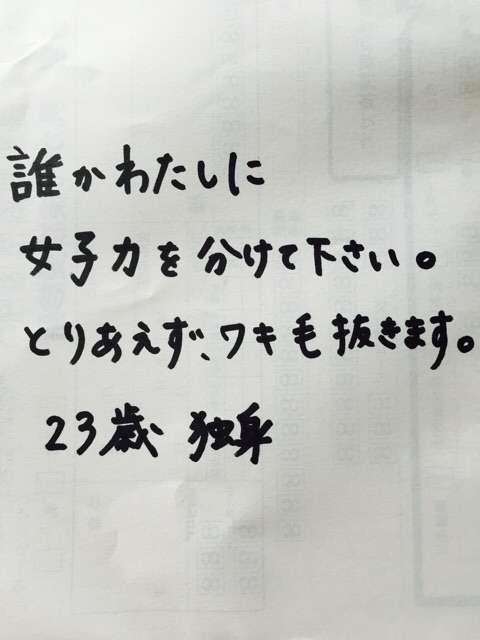 誰かわたしに
女子力を分けて下さい。
とりあえず、ワキ毛抜きます。
23歳 独身